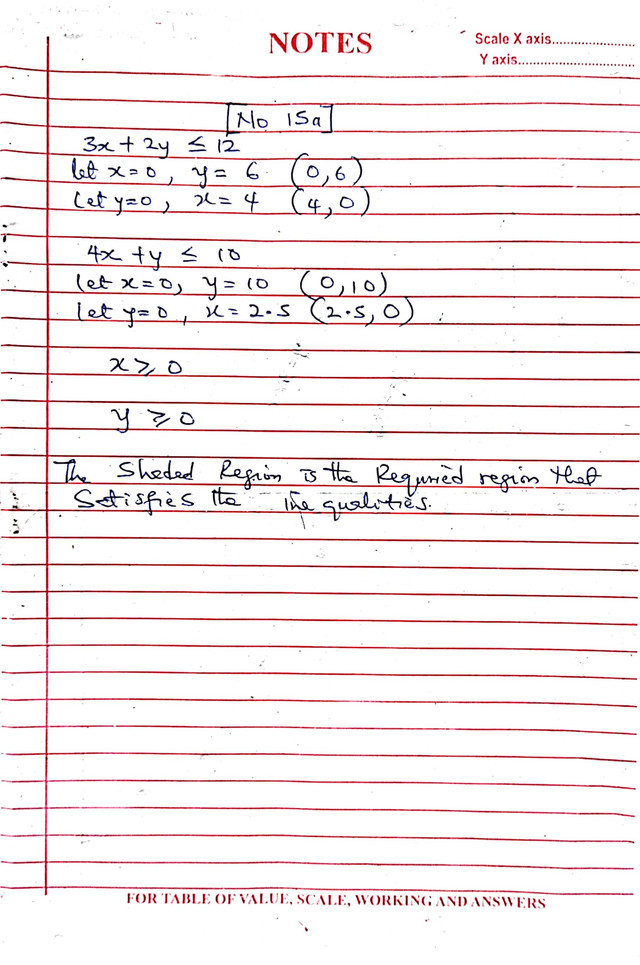 NOTES
Scale X axis.....................
Y axis..............................
No 15a
3x + 2y ≤ 12
let x=0, y= 6 (0,6)
Let y=0, x= 4 (4,0)
4x + y ≤ 10
let x=0, y=10 (0,10)
let y=0, x=2.5 (2.5,0)
x ≥ 0
y ≥ 0
The Sheded Region is the Requried region that
Satisfies the Inequalities.
FOR TABLE OF VALUE, SCALE, WORKING AND ANSWERS